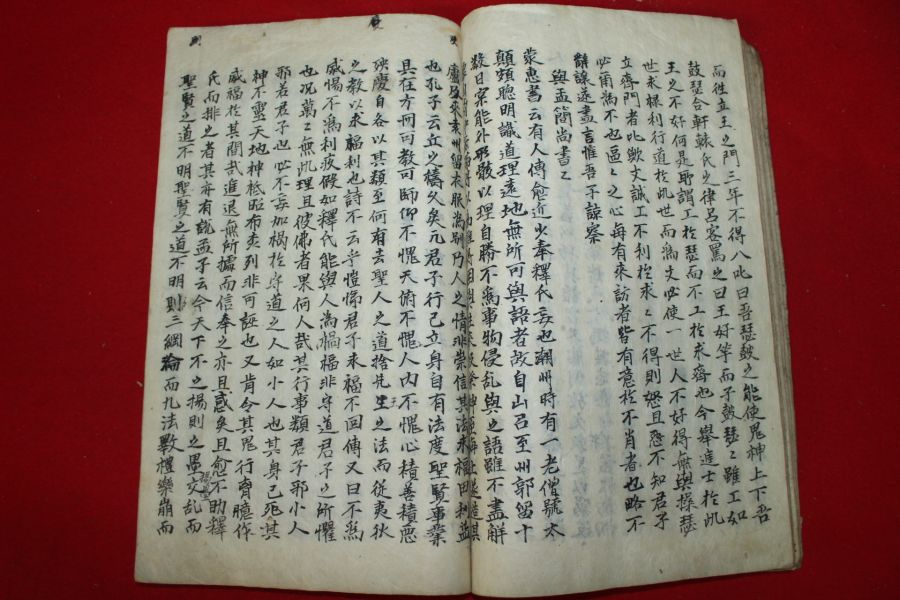 而姓立王之門三年不得八叱曰吾瑟鼓之能使鬼神上下吾
鼓瑟合軒轅氏之律呂客罵之曰王好竽而子鼓瑟〻雖工如
王之不好何是耶謂工於瑟而不工於求齊也今舉進士於此
世求祿利行道於此世而爲文必使一世人不好得無與操瑟
立齊門者比歟文誠工不利於求〻不得則怒且怨不知君子
必爾爲不也區〻之心每有來訪者皆有意於不肖者也略不
辭讓遂盡言惟吾子諒察
與孟簡尚書
蒙惠書云有人傳愈近少奉釋氏妄也潮州時有一老僧號太
顚頗聰明識道理遠地無所可與語者故自山召至州郭留十
數日寔能外形骸以理自勝不爲事物侵乱與之語雖不盡解
廬及來袁州留衣服爲別乃人之情非崇信其法求福田利益
也孔子云丘之禱久矣凡君子行己立身自有法度聖賢事業
具在方冊可敎可師仰不愧天俯不愧人內不愧心積善積惡
殃慶自各以其類至何有去聖人之道捨先王之法而從夷狄
之敎以求福利也詩不云乎愷悌君子求福不回傳又曰不爲
威惕不爲利疚假如釋氏能與人爲禍福非守道君子之所懼
也况萬〻無此理且彼佛者果何人哉其行事類君子邪小人
邪若君子也必不妄加禍於守道之人如小人也其身已死其
神不靈天地神祗昭布森列非可誣也又肯令其鬼行胷臆作
威福於其間哉進退無所據而信奉之亦且惑矣且愈不助釋
氏而排之者其亦有說孟子云今天下不之揚則之墨交乱而
聖賢之道不明聖賢之道不明則三綱淪而九法斁禮樂崩而